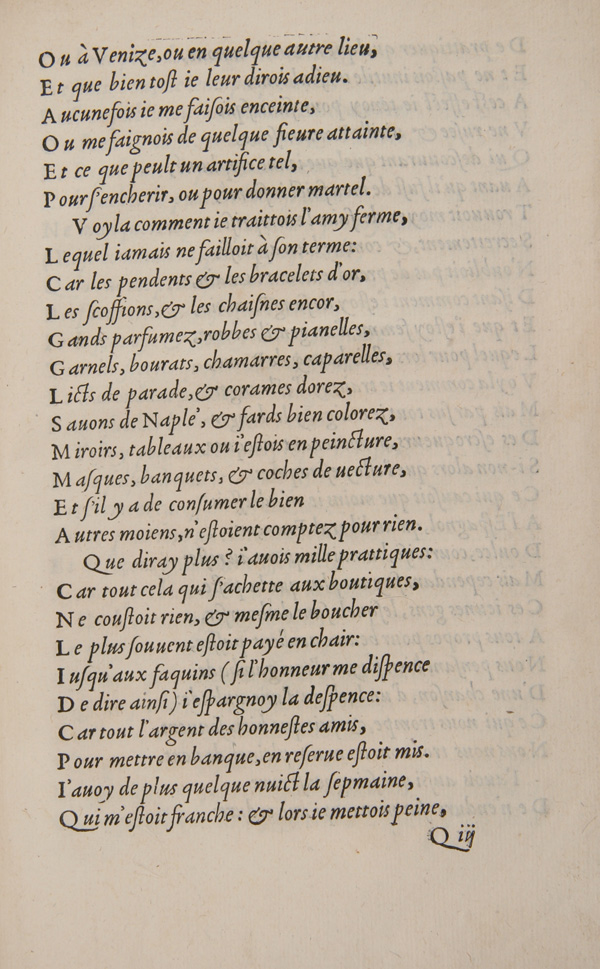 Ou à Venize, ou en quelque autre lieu,
Et que bien tost ie leur dirois adieu.
Aucunefois ie me faisois enceinte,
Ou me faignois de quelque fieure attainte,
Et ce que peult un artifice tel,
Pour s'encherir, ou pour donner martel.
Voyla comment ie traittois l'amy ferme,
Lequel iamais ne failloit à son terme:
Car les pendents & les bracelets d'or,
Les scoffions, & les chaisnes encor,
Gands parfumez, robbes & pianelles,
Garnels, bourats, chamarres, caparelles,
Licts de parade, & corames dorez,
Sauons de Naple', & fards bien colorez,
Miroirs, tableaux ou i'estois en peincture,
Masques, banquets, & coches de uecture,
Et s'il y a de consumer le bien
Autres moiens, n'estoient comptez pour rien.
Que diray plus? i'auois mille prattiques:
Car tout cela qui s'achette aux boutiques,
Ne coustoit rien, & mesme le boucher
Le plus souuent estoit payé en chair:
Iusqu'aux faquins (si l'honneur me dispence
De dire ainsi) i'espargnoy la despence:
Car tout l'argent des honnestes amis,
Pour mettre en banque, en reserue estoit mis.
I'auoy de plus quelque nuict la sepmaine,
Qui m'estoit franche: & lors ie mettois peine,
Q iij